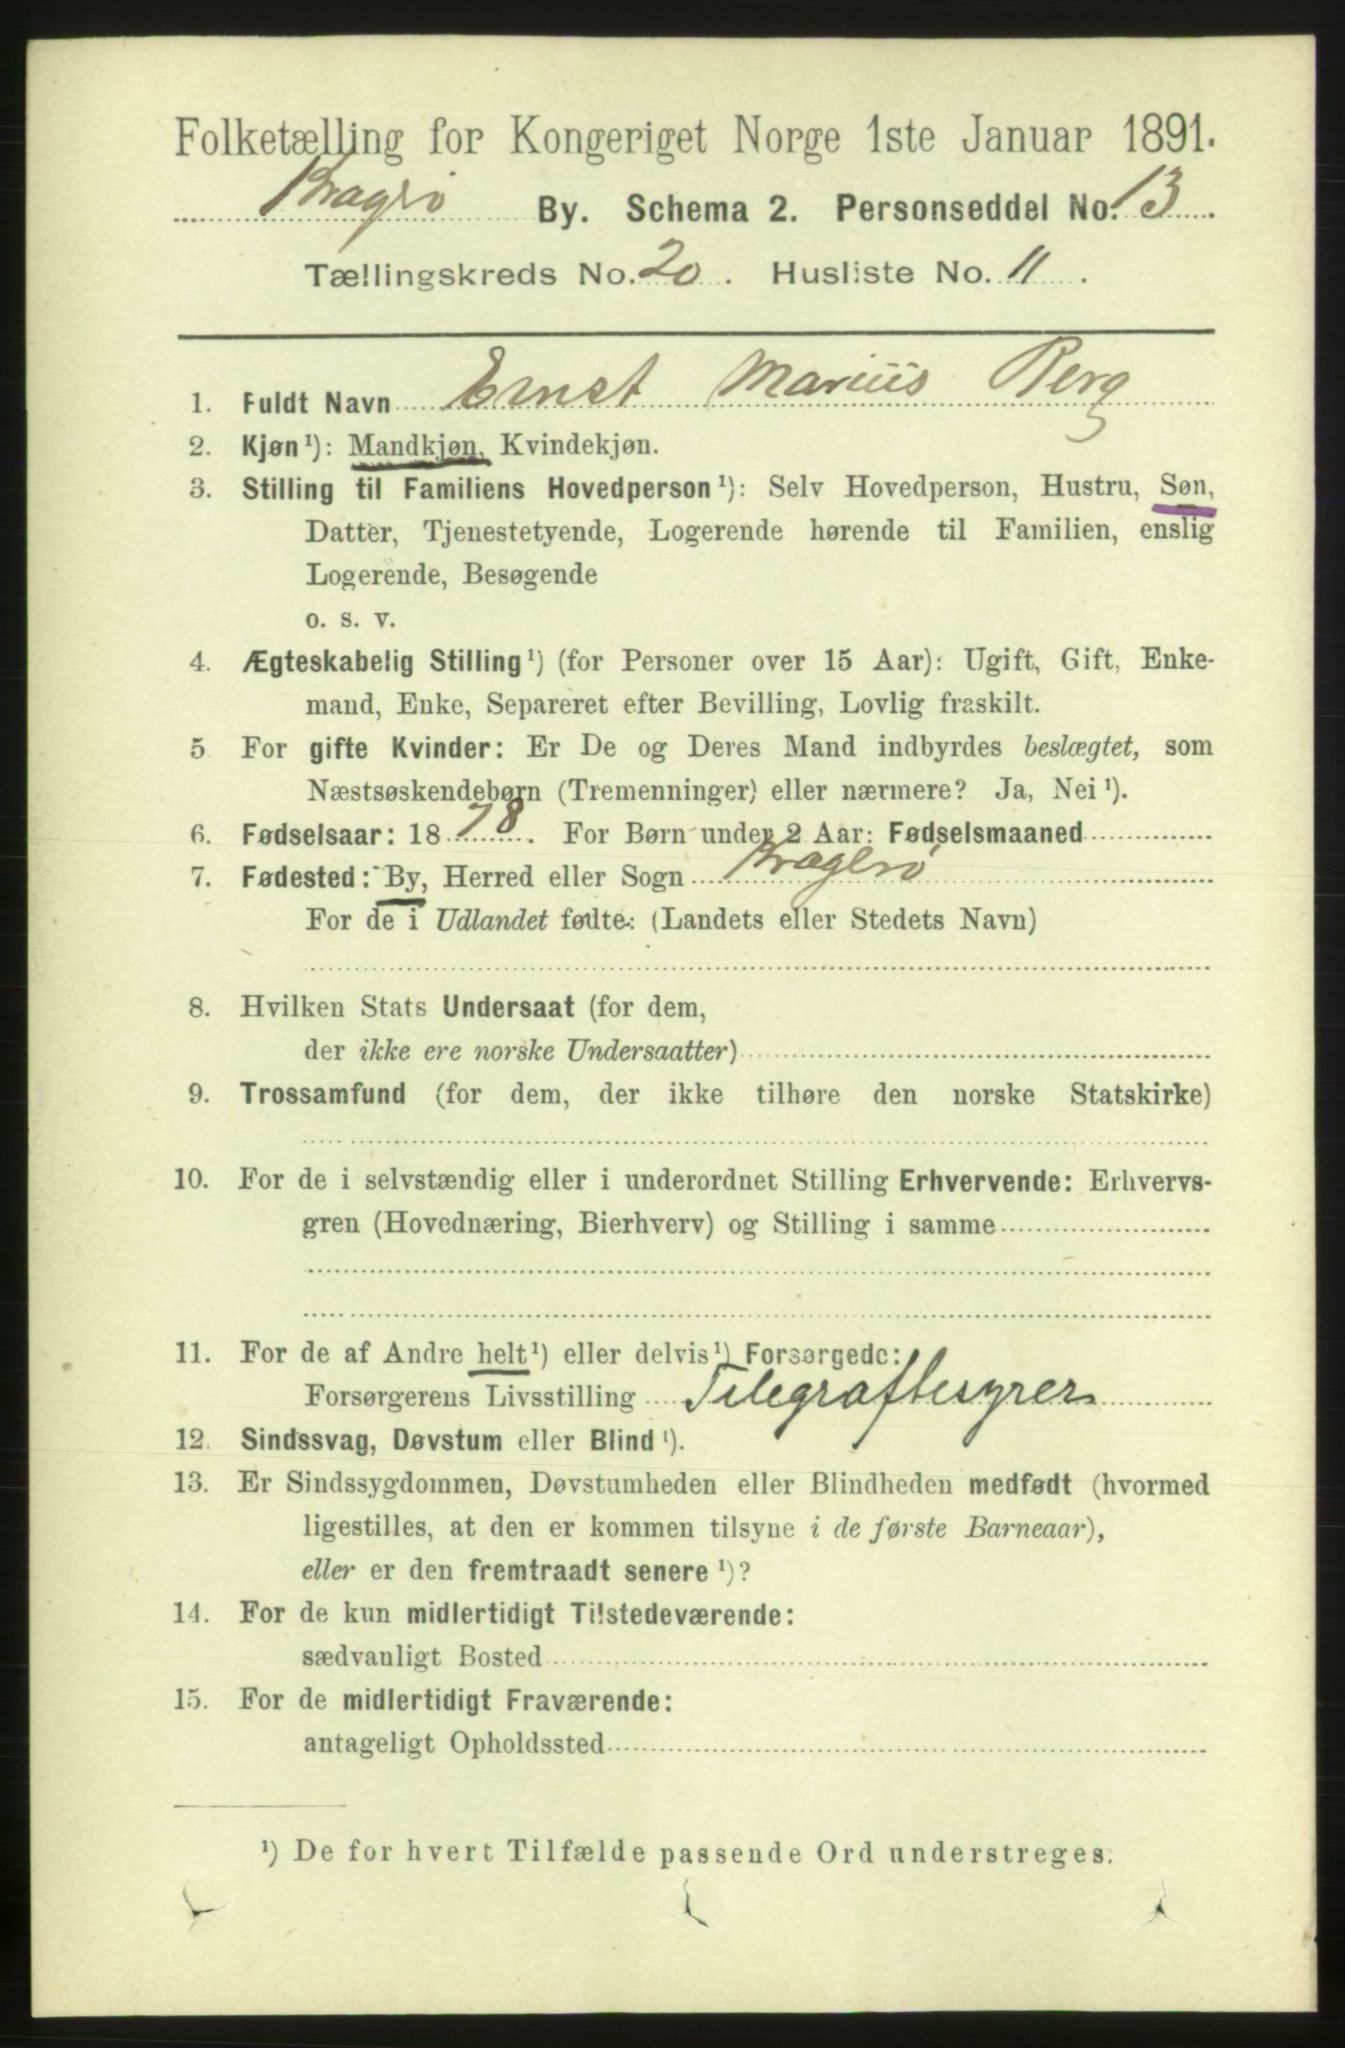 Folketælling for Kongeriget Norge 1ste Januar 1891.
Kragerø By. Schema 2. Personseddel No. 13.
Tællingskreds No. 20. Husliste No. 11.
1. Fuldt Navn Ernst Marius Berg
2. Kjøn¹): Mandkjøn, Kvindekjøn.
3. Stilling til Familiens Hovedperson¹): Selv Hovedperson, Hustru, Søn,
Datter, Tjenestetyende, Logerende hørende til Familien, enslig
Logerende, Besøgende
o. s. v.
4. Ægteskabelig Stilling¹) (for Personer over 15 Aar): Ugift, Gift, Enke-
mand, Enke, Separeret efter Bevilling, Lovlig fraskilt.
5 For gifte Kvinder: Er De og Deres Mand indbyrdes beslægtet, som
Næstsøskendebørn (Tremenninger) eller nærmere? Ja, Nei¹).
6. Fødselsaar: 1878. For Børn under 2 Aar: Fødselsmaaned
7. Fødested: By, Herred eller Sogn Kragerø
For de i Udlandet fødte: (Landets eller Stedets Navn)
8. Hvilken Stats Undersaat (for dem,
der ikke ere norske Undersaatter)
9. Trossamfund (for dem, der ikke tilhøre den norske Statskirke)
10. For de i selvstændig eller i underordnet Stilling Erhvervende: Erhvervs-
gren (Hovednæring, Bierhverv) og Stilling i samme
11. For de af Andre helt¹) eller delvis¹) Forsørgede:
Forsørgerens Livsstilling Telegrafbestyrer
12. Sindssvag, Døvstum eller Blind¹).
13. Er Sindssygdommen, Døvstumheden eller Blindheden medfødt (hvormed
ligestilles, at den er kommen tilsyne i de første Barneaar),
eller er den fremtraadt senere¹)?
14. For de kun midlertidigt Tilstedeværende:
sædvanligt Bosted
15. For de midlertidigt Fraværende:
antageligt Opholdssted
¹) De for hvert Tilfælde passende Ord understreges.